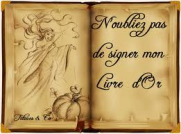 N'oubliez pas
de signer mon
Livre d'Or